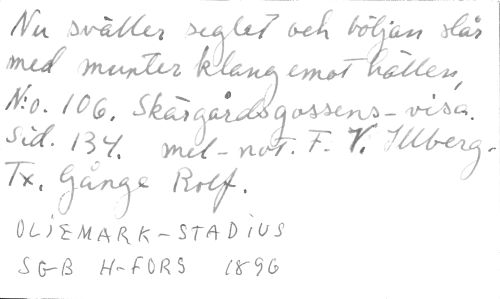 Nu sväller seglet och böljan slår
med munter klang emot hällen,
N:o. 106. Skärgårdsgossens-visa.
Sid. 134. mel-not. F. V. Illberg-
Tx. Gånge Rolf.
OLIEMARK-STADIUS
SGB H-FORS 1896